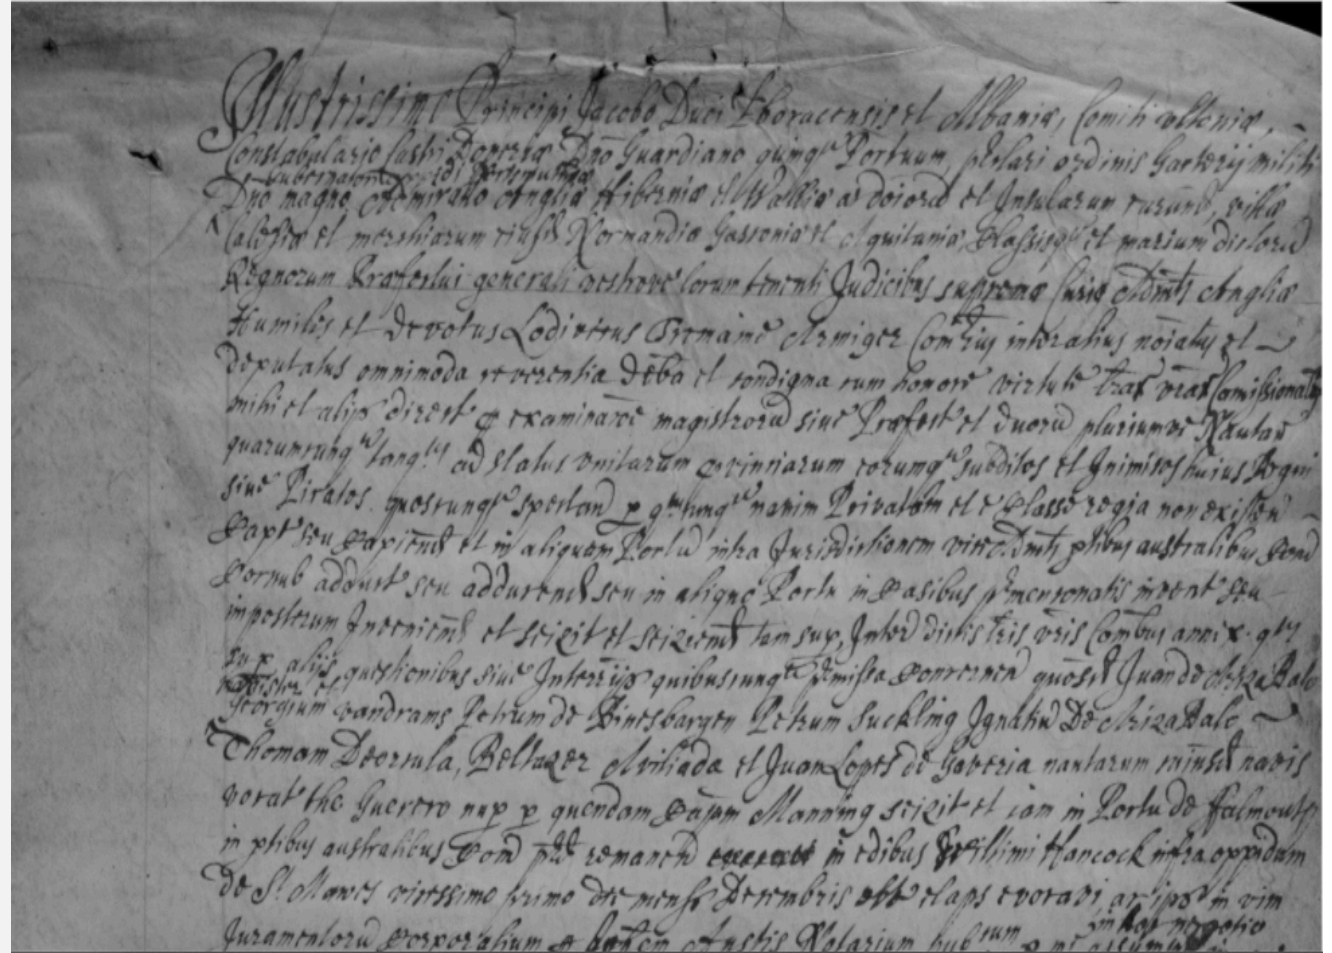 Illustrissimo Principi Jacobo Duci Eboracensis et Albaniæ, Comiti Ultoniæ,
Constabulario Castri Doveriæ Dño Guardiano quinq Portuum, ordinis Garterij militi
Gubernatori
Dño magno Admirallo Angliæ Hiberniæ et Walliæ ac et Insularum villæ
Calesiæ et merchiarum eiusd Normandiæ Gasconiæ et Aquitaniæ Classisq et marium dictorũ
Regnorum Præfectui generali vestrove locum tenenti Judicibus supremæ Curiæ Admtis Angliæ
Humilis et devotus Lodivicus Tremaine Armiger Comrius inter alius noiatus et
deputatus omnimoda reverentia debã et condigna cum honore virtute lrar vrar Comissionaliũ
mihi et alijs direct p examinacoe magistrorũ sive Præfect et duorũ pluriumve Nautar
quarumcunq ad Status unitarum provinciarum eorumq subditos et Inimicos huius Regni
sive Piratas quoscunq spectand p navim Privatam et e Classe regia non existen
Capt seu Capiend et in aliquem Portũ infra Jurisdictionem vice Admtis ptibus australibus Com
Cornub adduct seu adducend seu in aliquo Portu in Casibus pmenconatis invent seu
imposterum Inveniend et seizit et seiziend tam sup Inter dictis lris vris Combus annex
sup alijs questionibus sive Interrijs quibuscunq pmissa Concernen Juan de Arizabalo
magister et
Georgium vandrams Petrum de Binesbargen Petrum Suckling Ignatiũ De Arizabalo
Thomam Deorsula, Beltazer Aviliada et Juan Lopes de Gaveria nautarum navis
vocat the Guerero nup p quendam Cajam Manning seizit et iam in Portu de Falmouth
in ptibus australibus Com pd remanend in edibus Willimi Hancock infra oppidum
de St Mawes vicessimo primo die mensis Decembris elaps evocavi ac ipos in vim
in hoc negotio
Juramentorũ Corporalium p Anstis Notarium pub p me